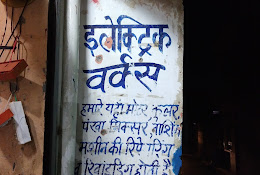 इलेक्ट्रिक
वर्कस
हमारे यहाँ मोटर कुलर
पंखा मिक्सर वाशिंग
मशीन की रिपेरिंग
व रिवाइडिंग होती है